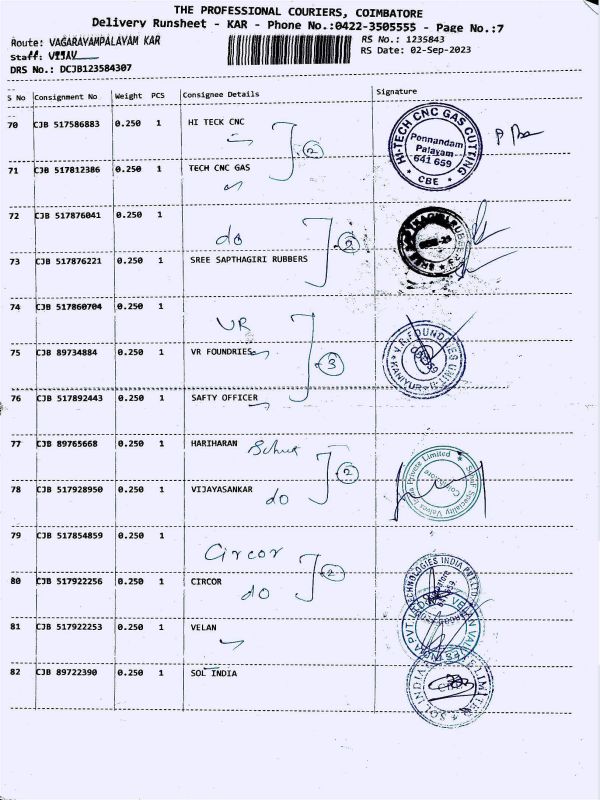 THE PROFESSIONAL COURIERS, COIMBATORE
Delivery Runsheet - KAR - Phone No.:0422-3505555 - Page No.:7
Route: VAGARAYAMPALAYAM KAR
RS No.: 1235843
Staff: VIJAY
RS Date: 02-Sep-2023
DRS No.: DCJB123584307
S No Consignment No Weight PCS Consignee Details Signature
70 CJB 517586883 0.250 1 HI TECK CNC
2
HI-TECH CNC GAS CUTTING
Pennandam
Palayam
641 659
CBE
71 CJB 517812386 0.250 1 TECH CNC GAS
72 CJB 517876041 0.250 1
do
2
73 CJB 517876221 0.250 1 SREE SAPTHAGIRI RUBBERS
74 CJB 517860704 0.250 1
VR
75 CJB 89734884 0.250 1 VR FOUNDRIES
3
V.R.FOUNDRIES UNIT
KANIYUR
76 CJB 517892443 0.250 1 SAFTY OFFICER
77 CJB 89765668 0.250 1 HARIHARAN
2
Speciality Valves Private Limited
Coimbatore
78 CJB 517928950 0.250 1 VIJAYASANKAR
do
79 CJB 517854859 0.250 1
Circor
2
80 CJB 517922256 0.250 1 CIRCOR
do
TECHNOLOGIES INDIA PVT.LTD
81 CJB 517922253 0.250 1 VELAN
VELAN VALVES INDIA PVT. LTD
82 CJB 89722390 0.250 1 SOL INDIA
SOL INDIA LIMITED